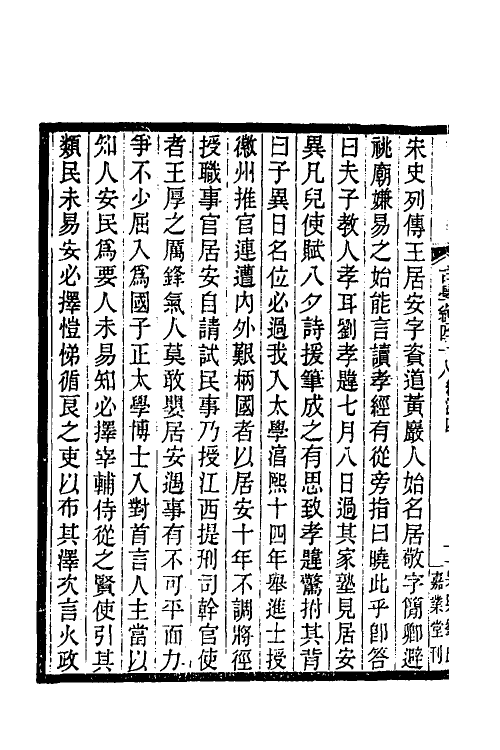 嘉業堂刊
宋史列傳王居安字資道黃巖人始名居敬字簡卿避
祧廟嫌易之始能言讀孝經有從旁指曰曉此乎卽答
曰夫子教人孝耳劉孝韙七月八日過其家塾見居安
異凡兒使賦八夕詩援筆成之有思致孝韙驚拊其背
曰子異日名位必過我入太學淳熙十四年舉進士授
徽州推官連遭內外艱柄國者以居安十年不調將徑
授職事官居安自請試民事乃授江西提刑司幹官使
者王厚之厲鋒氣人莫敢嬰居安遇事有不可平而力
爭不少屈入爲國子正太學博士入對首言人主當以
知人安民爲要人未易知必擇宰輔侍從之賢使引其
類民未易安必擇愷悌循良之吏以布其澤次言火政